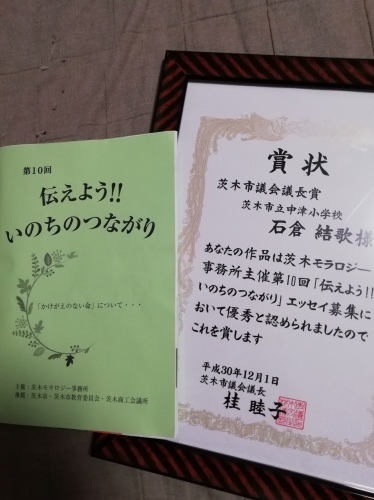 第10回
伝えよう!!
いのちのつながり
「かけがえのない命」について・・・
主催:茨木モラロジー事務所
後援:茨木市・茨木市教育委員会・茨木商工会議所
賞状
茨木市議会議長賞
茨木市立中津小学校
石倉 結歌様
あなたの作品は茨木モラロジー
事務所主催第10回「伝えよう!!
いのちのつながり」エッセイ募集に
おいて優秀と認められましたので
これを賞します
平成30年12月1日
茨木市議会議長
桂 睦子